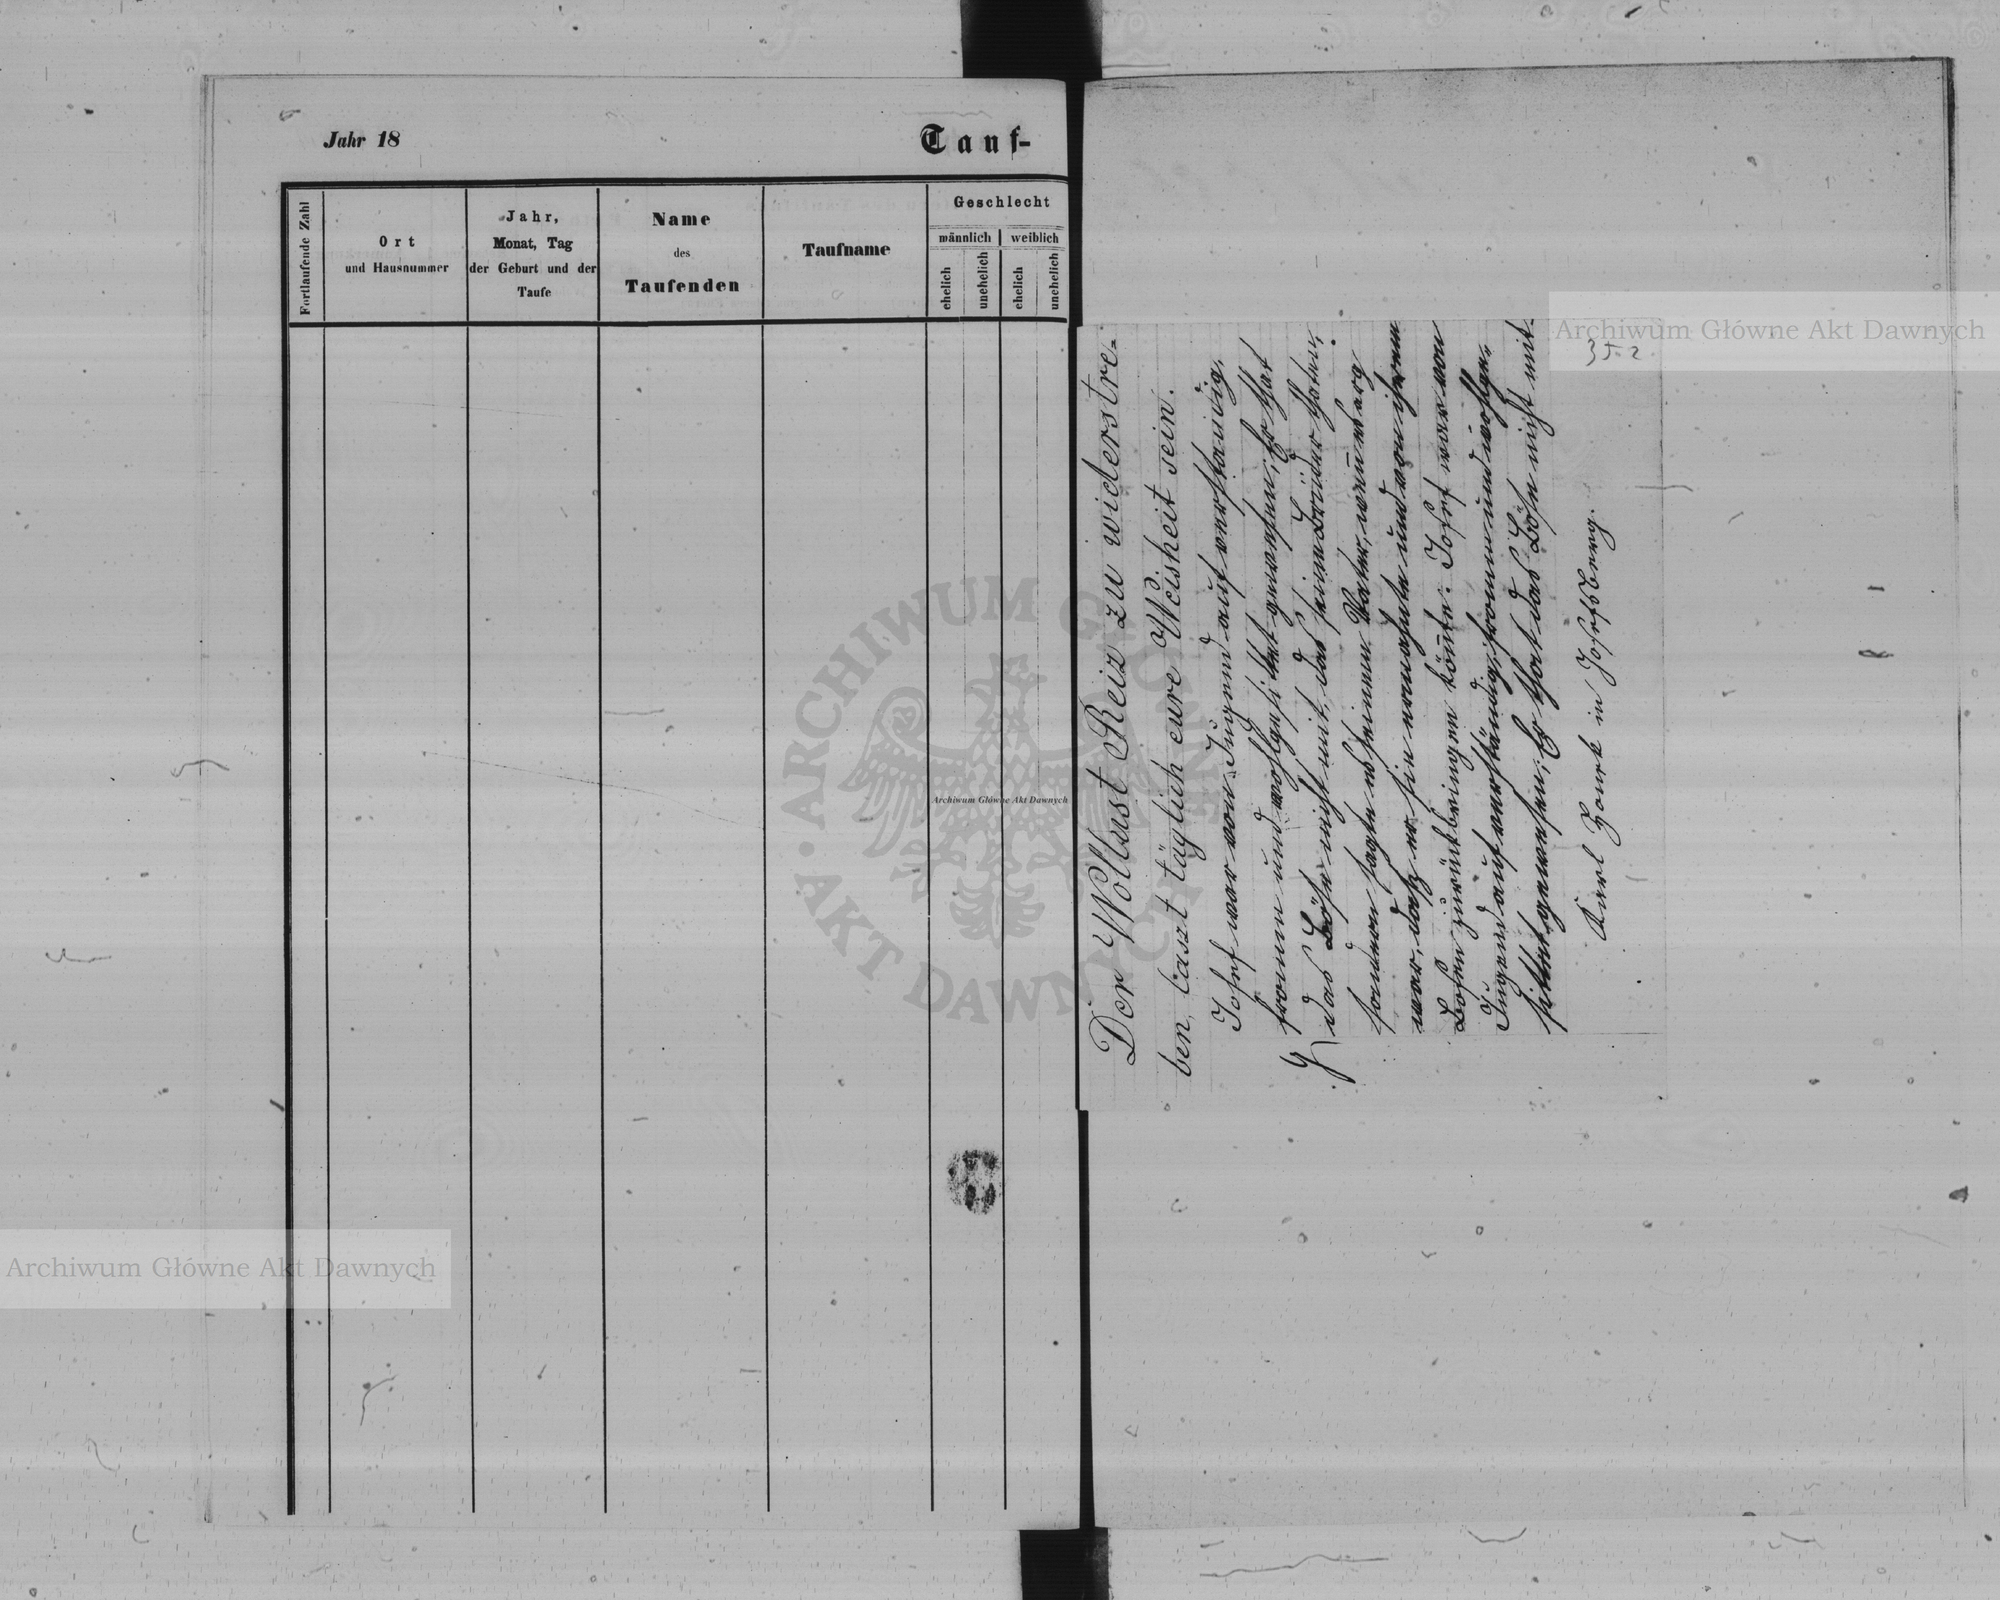 Jahr 18
Tauf-
Fortlaufende Zahl
Ort
und Hausnummer
Jahr,
Monat, Tag
der Geburt und der
Taufe
Name
des
Taufenden
Taufname
Geschlecht
männlich
weiblich
ehelich
unehelich
ehelich
unehelich
352
Der Wollust Reiz zu widerstre-
ben, laszt täglich eure Weisheit sein.
Josef war von Jugend auf verständig,
fromm und wohlgesittet gewesen; Er that
das Böse nicht mit, das seine Brüder thaten,
sondern sagte es seinem Vater, wenn es arg
war, dasz er sie ermahnte und von ihrem
Bösen zurückbringen könnte. Josef war von
Jugend auf verständig, fromm und wohlge-
sittet gewesen; Er that das Böse nicht mit.
Karl in Josefsberg.
Archiwum Główne Akt Dawnych
Archiwum Główne Akt Dawnych
Archiwum Główne Akt Dawnych
ARCHIWUM GŁÓWNE
AKT DAWNYCH